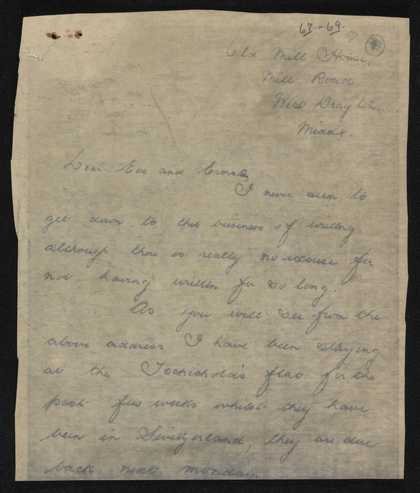 63-69.
Old Mill House,
Mill Road
West Drayton
Middx.
Dear Eve and
I never seem to
get down to this business of writing
although there is really no excuse for
not having written for so long.
As you will see from the
above address I have been staying
at the Tschichold's flat for the
past few weeks whilst they have
been in Switzerland, they are due
back next monday.